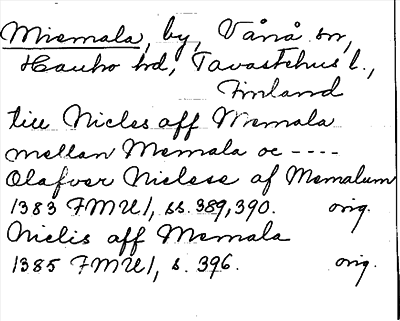 Miemala, by, Vånå sn,
Hauho hd, Tavastehus l.,
Finland
till Niclis aff Memala
mellan Memala oc ----
Olafver Nielsse af Memalum
1383 FMU1, ss. 389,390. orig.
Niclis aff Memala
1385 FMU1, s. 396. orig.